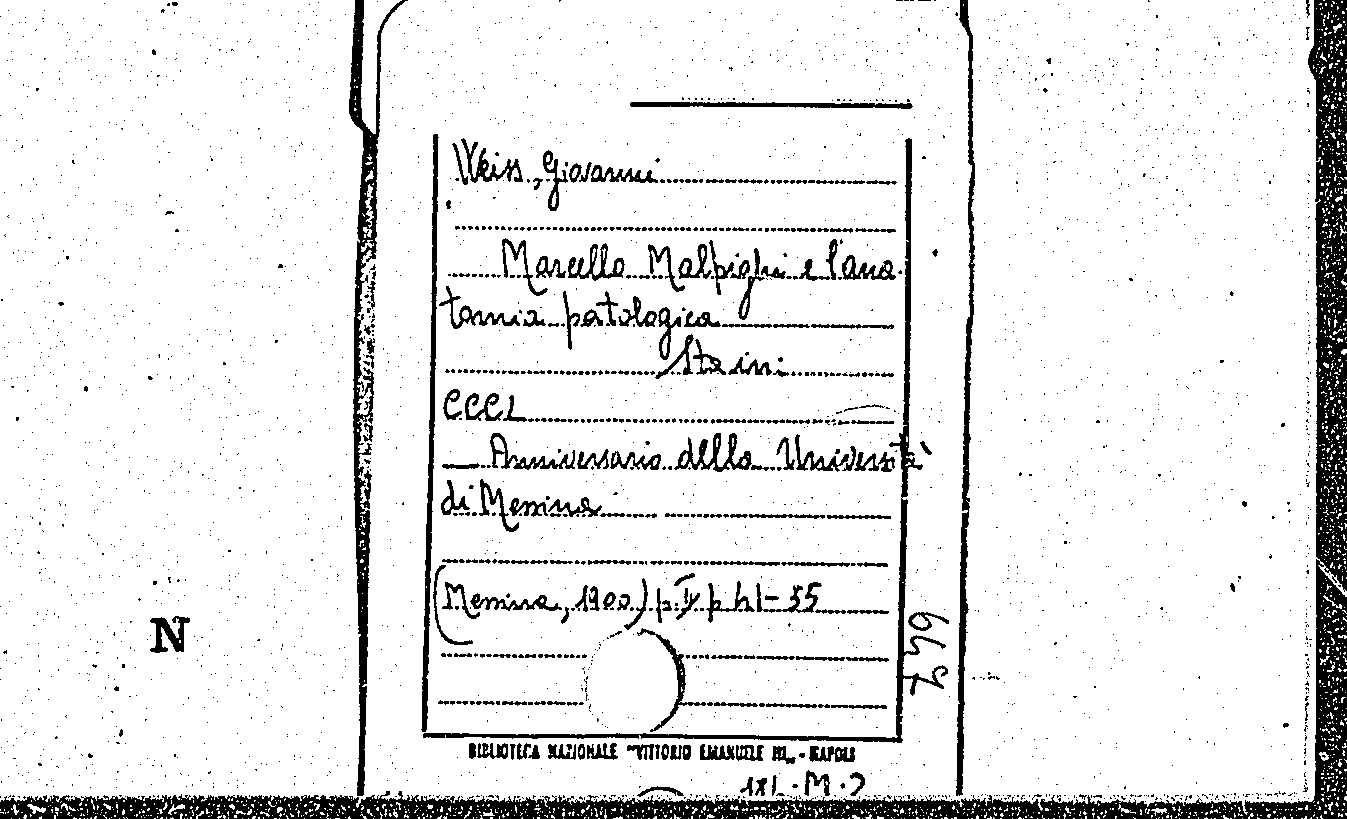 Weiss, Giovanni
Marcello Malpighi e l'ana-
tomia patologica
CCCL
Anniversario della Università
di Messina
(Messina, 1900) p. IV p.
N
BIBLIOTECA NAZIONALE "VITTORIO EMANUELE III„ - NAPOLI